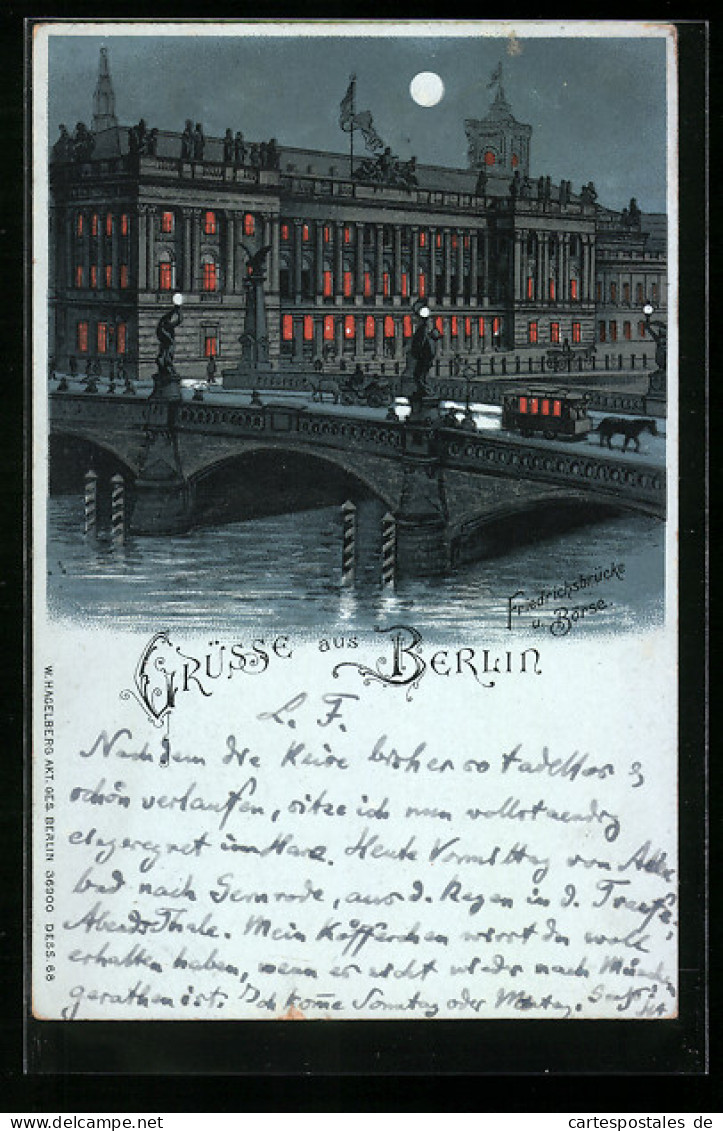 Friedrichsbrücke
u. Börse
GRÜSSE aus BERLIN
L. F.
Nachdem die Reise bisher so tadellos &
schön verlaufen, sitze ich nun vollstaendig
eingeregnet im Harz. Heute Vormittag von
bad nach Gernrode, aus d. Regen in d. Traufe,
Abends Thale. Mein Köfferchen wirst du wohl
erhalten haben, wenn es nicht wieder nach München
gerathen ist. Ich kome Sonntag oder Montag.
W. HAGELBERG AKT. GES. BERLIN 36900 DESS. 68
cartespostales de